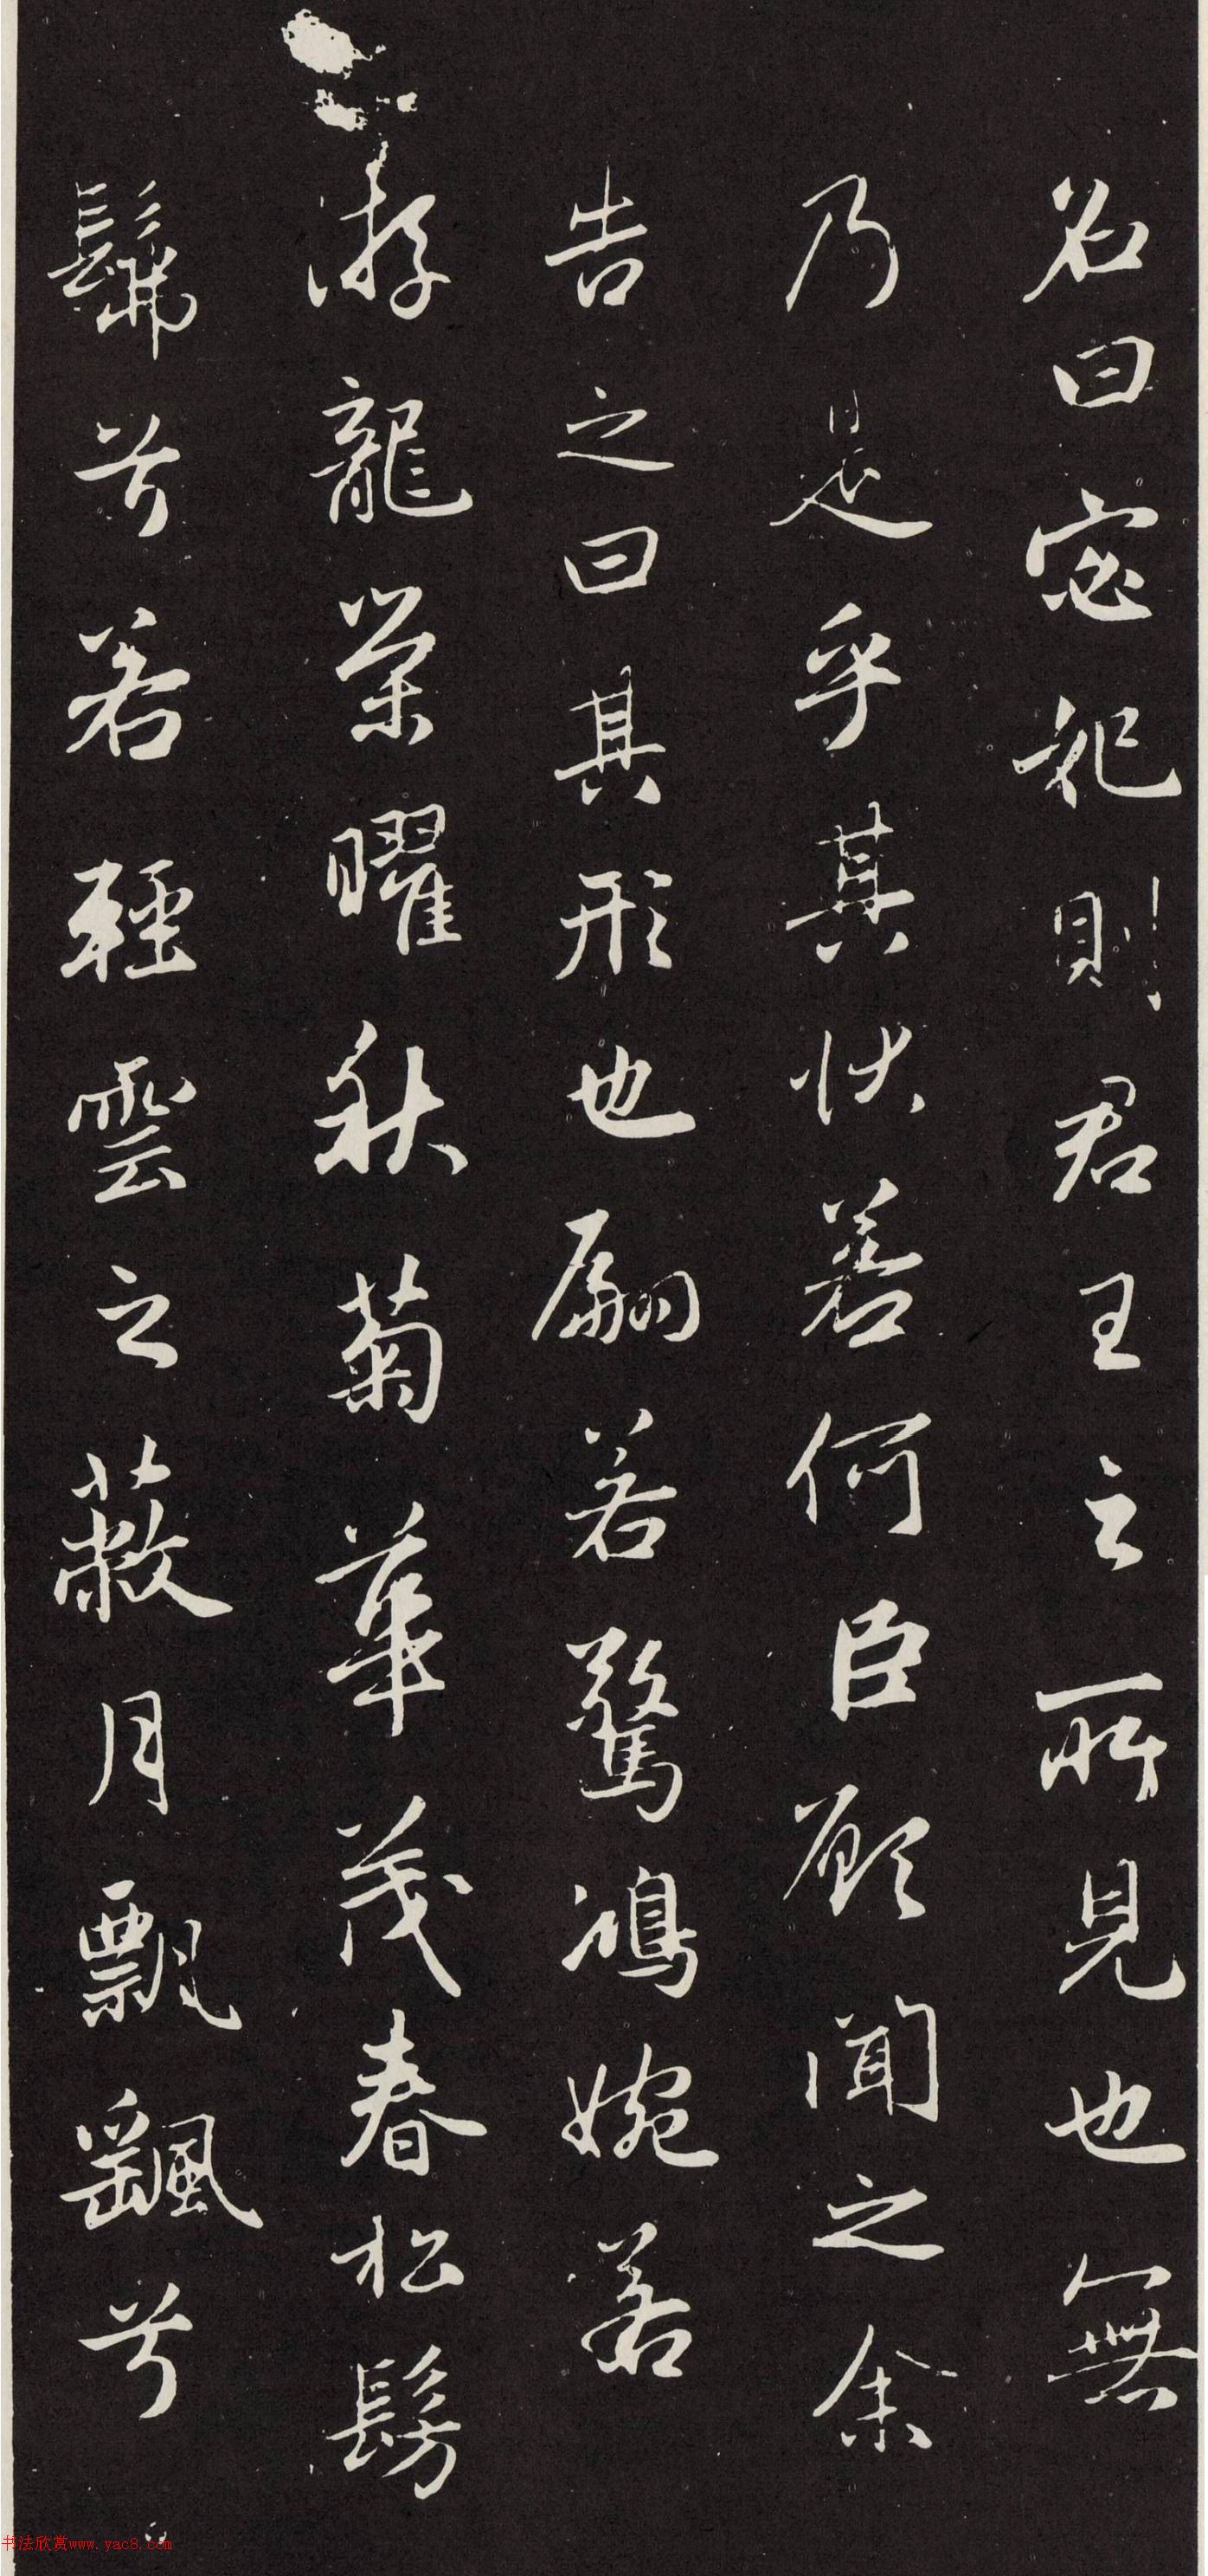 名曰宓妃則君王之所見也無
乃是乎其状若何臣願聞之余
告之曰其形也翩若驚鴻婉若
游龍榮曜秋菊華茂春松髣
髴兮若輕雲之蔽月飄颻兮
书法欣赏www.yac8.com